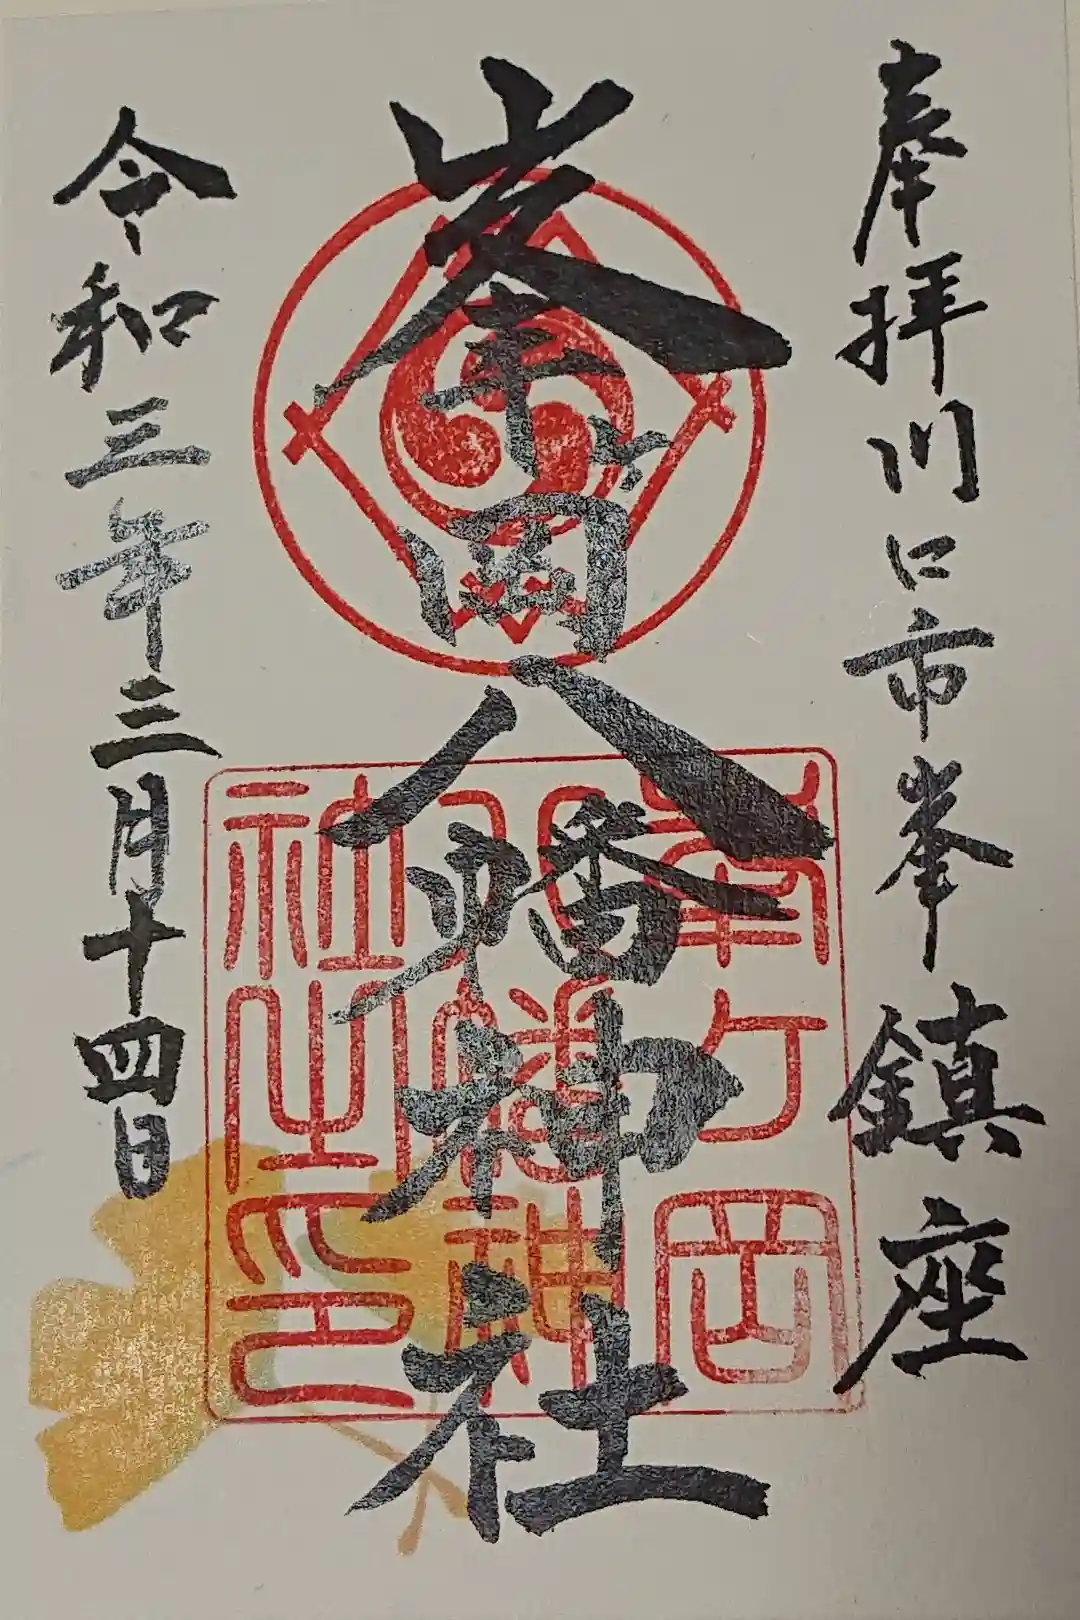 奉拝川口市峯鎮座
峯ヶ岡八幡神社
峯ヶ岡
八幡神
社之印
令和三年三月十四日